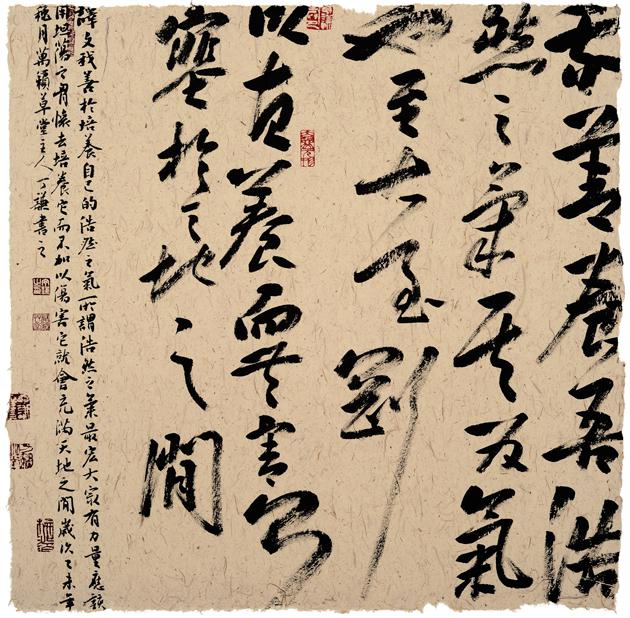 我善養吾浩
然之氣其为氣
也至大至剛
以直養而无害則
塞於天地之間
譯文我善於培養自己的浩然之氣所謂浩然之氣最宏大最有力量應該
用坦蕩之胸懷去培養它而不加以傷害它就會充滿天地之間歲次乙未年
穐月萬籟草堂主人丁謙書之